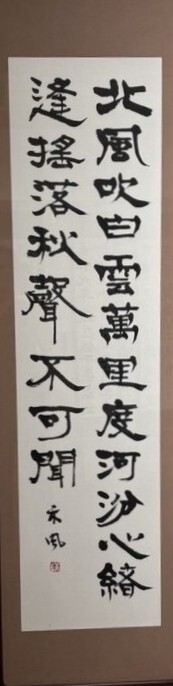 北風吹白雲萬里度河汾心緒
逢搖落秋聲不可聞